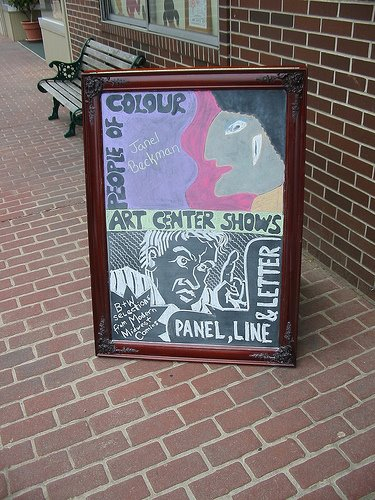 PEOPLE OF COLOUR
Janel
Beckman
ART CENTER SHOWS
B+W
selections
from Modern
Midwest
Comics
PANEL, LINE
& LETTER